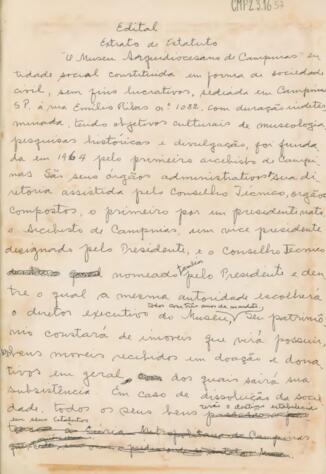 CMP2.3.16 57
Edital
Extrato de Estatuto
"O Museu Arquidiocesano de Campinas" en
tidade social constituida em forma de sociedade
civil, sem fins lucrativos, sediada em Campinas
SP. á rua Emilio Ribas nº 1022, com duração indeter
minada, tendo objetivos culturais de museologia,
pesquisas históricas e divulgação, foi funda
da em 1964 pelo primeiro arcebispo de Campi
nas São seus órgãos administrativos sua di
retoria assistida pelo Conselho Técnico, orgãos
compostos, o primeiro por um presidente nato
o Arcebispo de Campinas, um vice presidente
designado pelo Presidente, e o Conselho Técnico
nomeado pelo Presidente e den
tre o qual a mesma autoridade escolherá
o diretor executivo do Museu, Seu patrimo
nio constará de imoveis que virá possuir,
bens moveis recebidos em doação e dona
tivos em geral, dos quais sairá sua
subsistência Em caso de dissolução da socie
dade, todos os seus bens